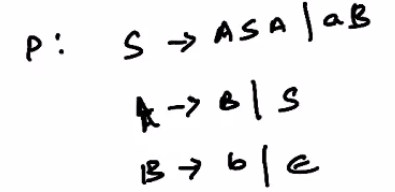 P: S → ASA | aB
A → B | S
B → b | ∈